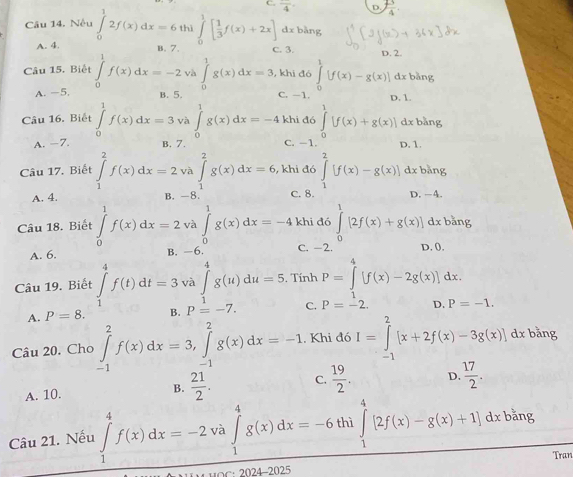 C. —/4. D. 4.
Câu 14. Nếu ∫₀¹ 2f(x) dx = 6 thì ∫₀¹ [1/3 f(x) + 2x] dx bằng
A. 4. B. 7. C. 3. D. 2.
Câu 15. Biết ∫₀¹ f(x) dx = −2 và ∫₀¹ g(x) dx = 3, khi đó ∫₀¹ [f(x) − g(x)] dx bằng
A. −5. B. 5. C. −1. D. 1.
Câu 16. Biết ∫₀¹ f(x) dx = 3 và ∫₀¹ g(x) dx = −4 khi đó ∫₀¹ [f(x) + g(x)] dx bằng
A. −7. B. 7. C. −1. D. 1.
Câu 17. Biết ∫₁² f(x) dx = 2 và ∫₁² g(x) dx = 6, khi đó ∫₁² [f(x) − g(x)] dx bằng
A. 4. B. −8. C. 8. D. −4.
Câu 18. Biết ∫₀¹ f(x) dx = 2 và ∫₀¹ g(x) dx = −4 khi đó ∫₀¹ [2f(x) + g(x)] dx bằng
A. 6. B. −6. C. −2. D. 0.
Câu 19. Biết ∫₁⁴ f(t) dt = 3 và ∫₁⁴ g(u) du = 5. Tính P = ∫₁⁴ [f(x) − 2g(x)] dx.
A. P = 8. B. P = −7. C. P = −2. D. P = −1.
Câu 20. Cho ∫₋₁² f(x) dx = 3, ∫₋₁² g(x) dx = −1. Khi đó I = ∫₋₁² [x + 2f(x) − 3g(x)] dx bằng
A. 10. B. 21/2. C. 19/2. D. 17/2.
Câu 21. Nếu ∫₁⁴ f(x) dx = −2 và ∫₁⁴ g(x) dx = −6 thì ∫₁⁴ [2f(x) − g(x) + 1] dx bằng
Tran
HỌC: 2024–2025